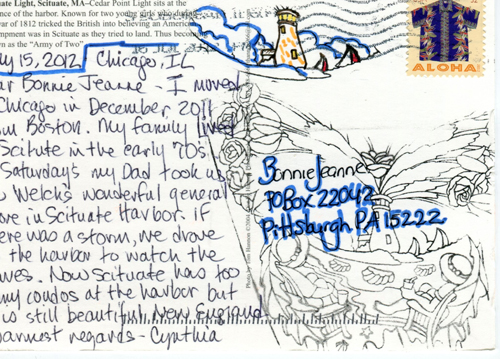 ate Light, Scituate, MA–Cedar Point Light sits at the
nce of the harbor. Known for two young girls who during
ar of 1812 tricked the British into believing an American
mpment was in Scituate as they tried to land. Thus
n as the "Army of Two"
ly 15, 2012 Chicago, IL
ar Bonnie Jeanne - I moved
Chicago in December 2011
m Boston. My family lived
Scitute in the early 70's
Saturday's my Dad took us
Welch's wonderful general
ore in Scituate Harbor. If
ere was a storm, we drove
the harbor to watch the
ves. Now Scituate has too
ny condos at the harbor but
is still beautiful New England
armest regards - Cynthia
ALOHA!
Bonnie Jeanne
PO Box 22042
Pittsburgh PA 15222